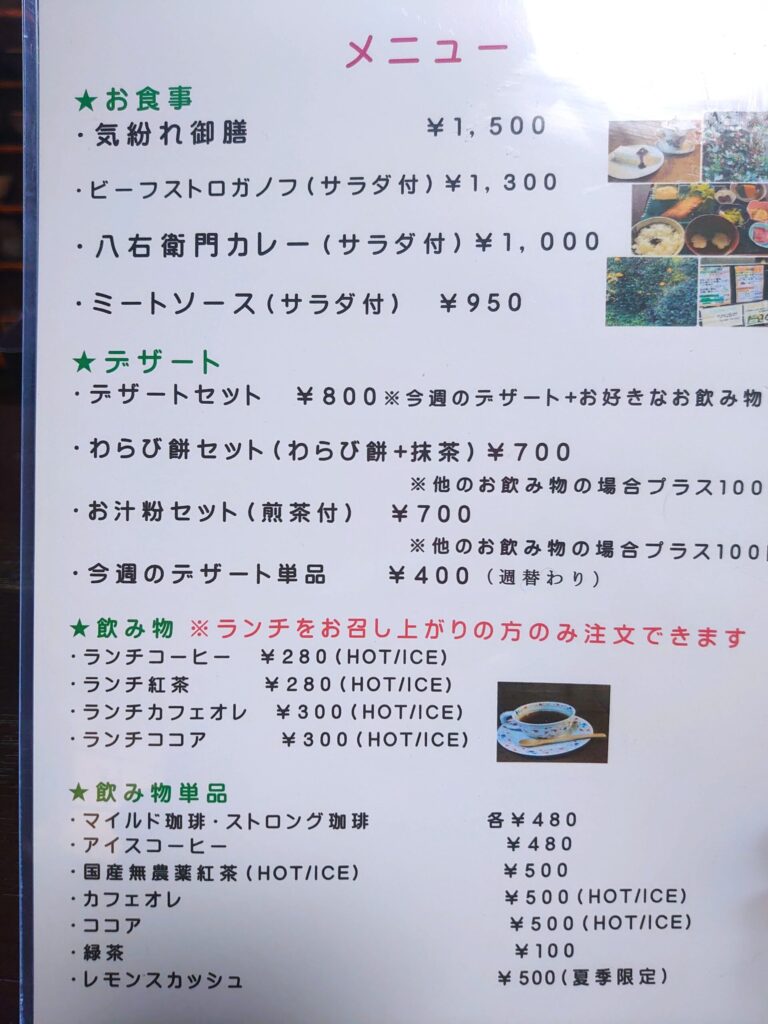 メニュー
★お食事
・気紛れ御膳 ￥1,500
・ビーフストロガノフ(サラダ付)￥1,300
・八右衛門カレー(サラダ付)￥1,000
・ミートソース(サラダ付) ￥950
★デザート
・デザートセット ￥800※今週のデザート+お好きなお飲み物
・わらび餅セット(わらび餅+抹茶)￥700
※他のお飲み物の場合プラス100
・お汁粉セット(煎茶付) ￥700
※他のお飲み物の場合プラス100
・今週のデザート単品 ￥400(週替わり)
★飲み物 ※ランチをお召し上がりの方のみ注文できます
・ランチコーヒー ￥280(HOT/ICE)
・ランチ紅茶 ￥280(HOT/ICE)
・ランチカフェオレ ￥300(HOT/ICE)
・ランチココア ￥300(HOT/ICE)
★飲み物単品
・マイルド珈琲・ストロング珈琲 各￥480
・アイスコーヒー ￥480
・国産無農薬紅茶(HOT/ICE) ￥500
・カフェオレ ￥500(HOT/ICE)
・ココア ￥500(HOT/ICE)
・緑茶 ￥100
・レモンスカッシュ ￥500(夏季限定)